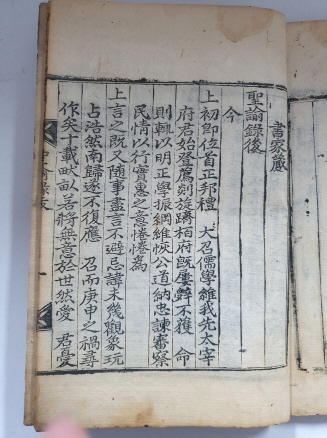 書家藏
聖諭錄後
今
上初即位首正邦禮　大召儒學維我先太宰
府君始登薦剡旋躋栢府旣屢辭不獲　命
則輒以明正學振綱維恢公道納忠諫審察
民情以行實惠之意惓惓爲
上言之旣又隨事盡言不避忌諱未幾觀象玩
占浩然南歸遂不復應　召而庚申之禍尋
作矣十載畎畒若將無意於世然愛　君憂